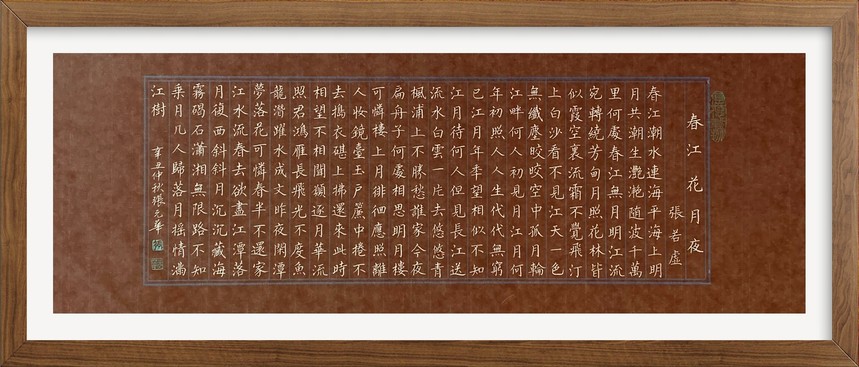 春江花月夜
張若虛
春江潮水連海平海上明
月共潮生灩灩隨波千萬
里何處春江無月明江流
宛轉繞芳甸月照花林皆
似霰空裏流霜不覺飛汀
上白沙看不見江天一色
無纖塵皎皎空中孤月輪
江畔何人初見月江月何
年初照人人生代代無窮
已江月年年望相似不知
江月待何人但見長江送
流水白雲一片去悠悠青
楓浦上不勝愁誰家今夜
扁舟子何處相思明月樓
可憐樓上月徘徊應照離
人妝鏡臺玉戶簾中捲不
去搗衣碪上拂還來此時
相望不相聞願逐月華流
照君鴻雁長飛光不度魚
龍潛躍水成文昨夜閑潭
夢落花可憐春半不還家
江水流春去欲盡江潭落
月復西斜斜月沉沉藏海
霧碣石瀟湘無限路不知
乘月几人歸落月搖情滿
江樹
辛丑仲秋張元華